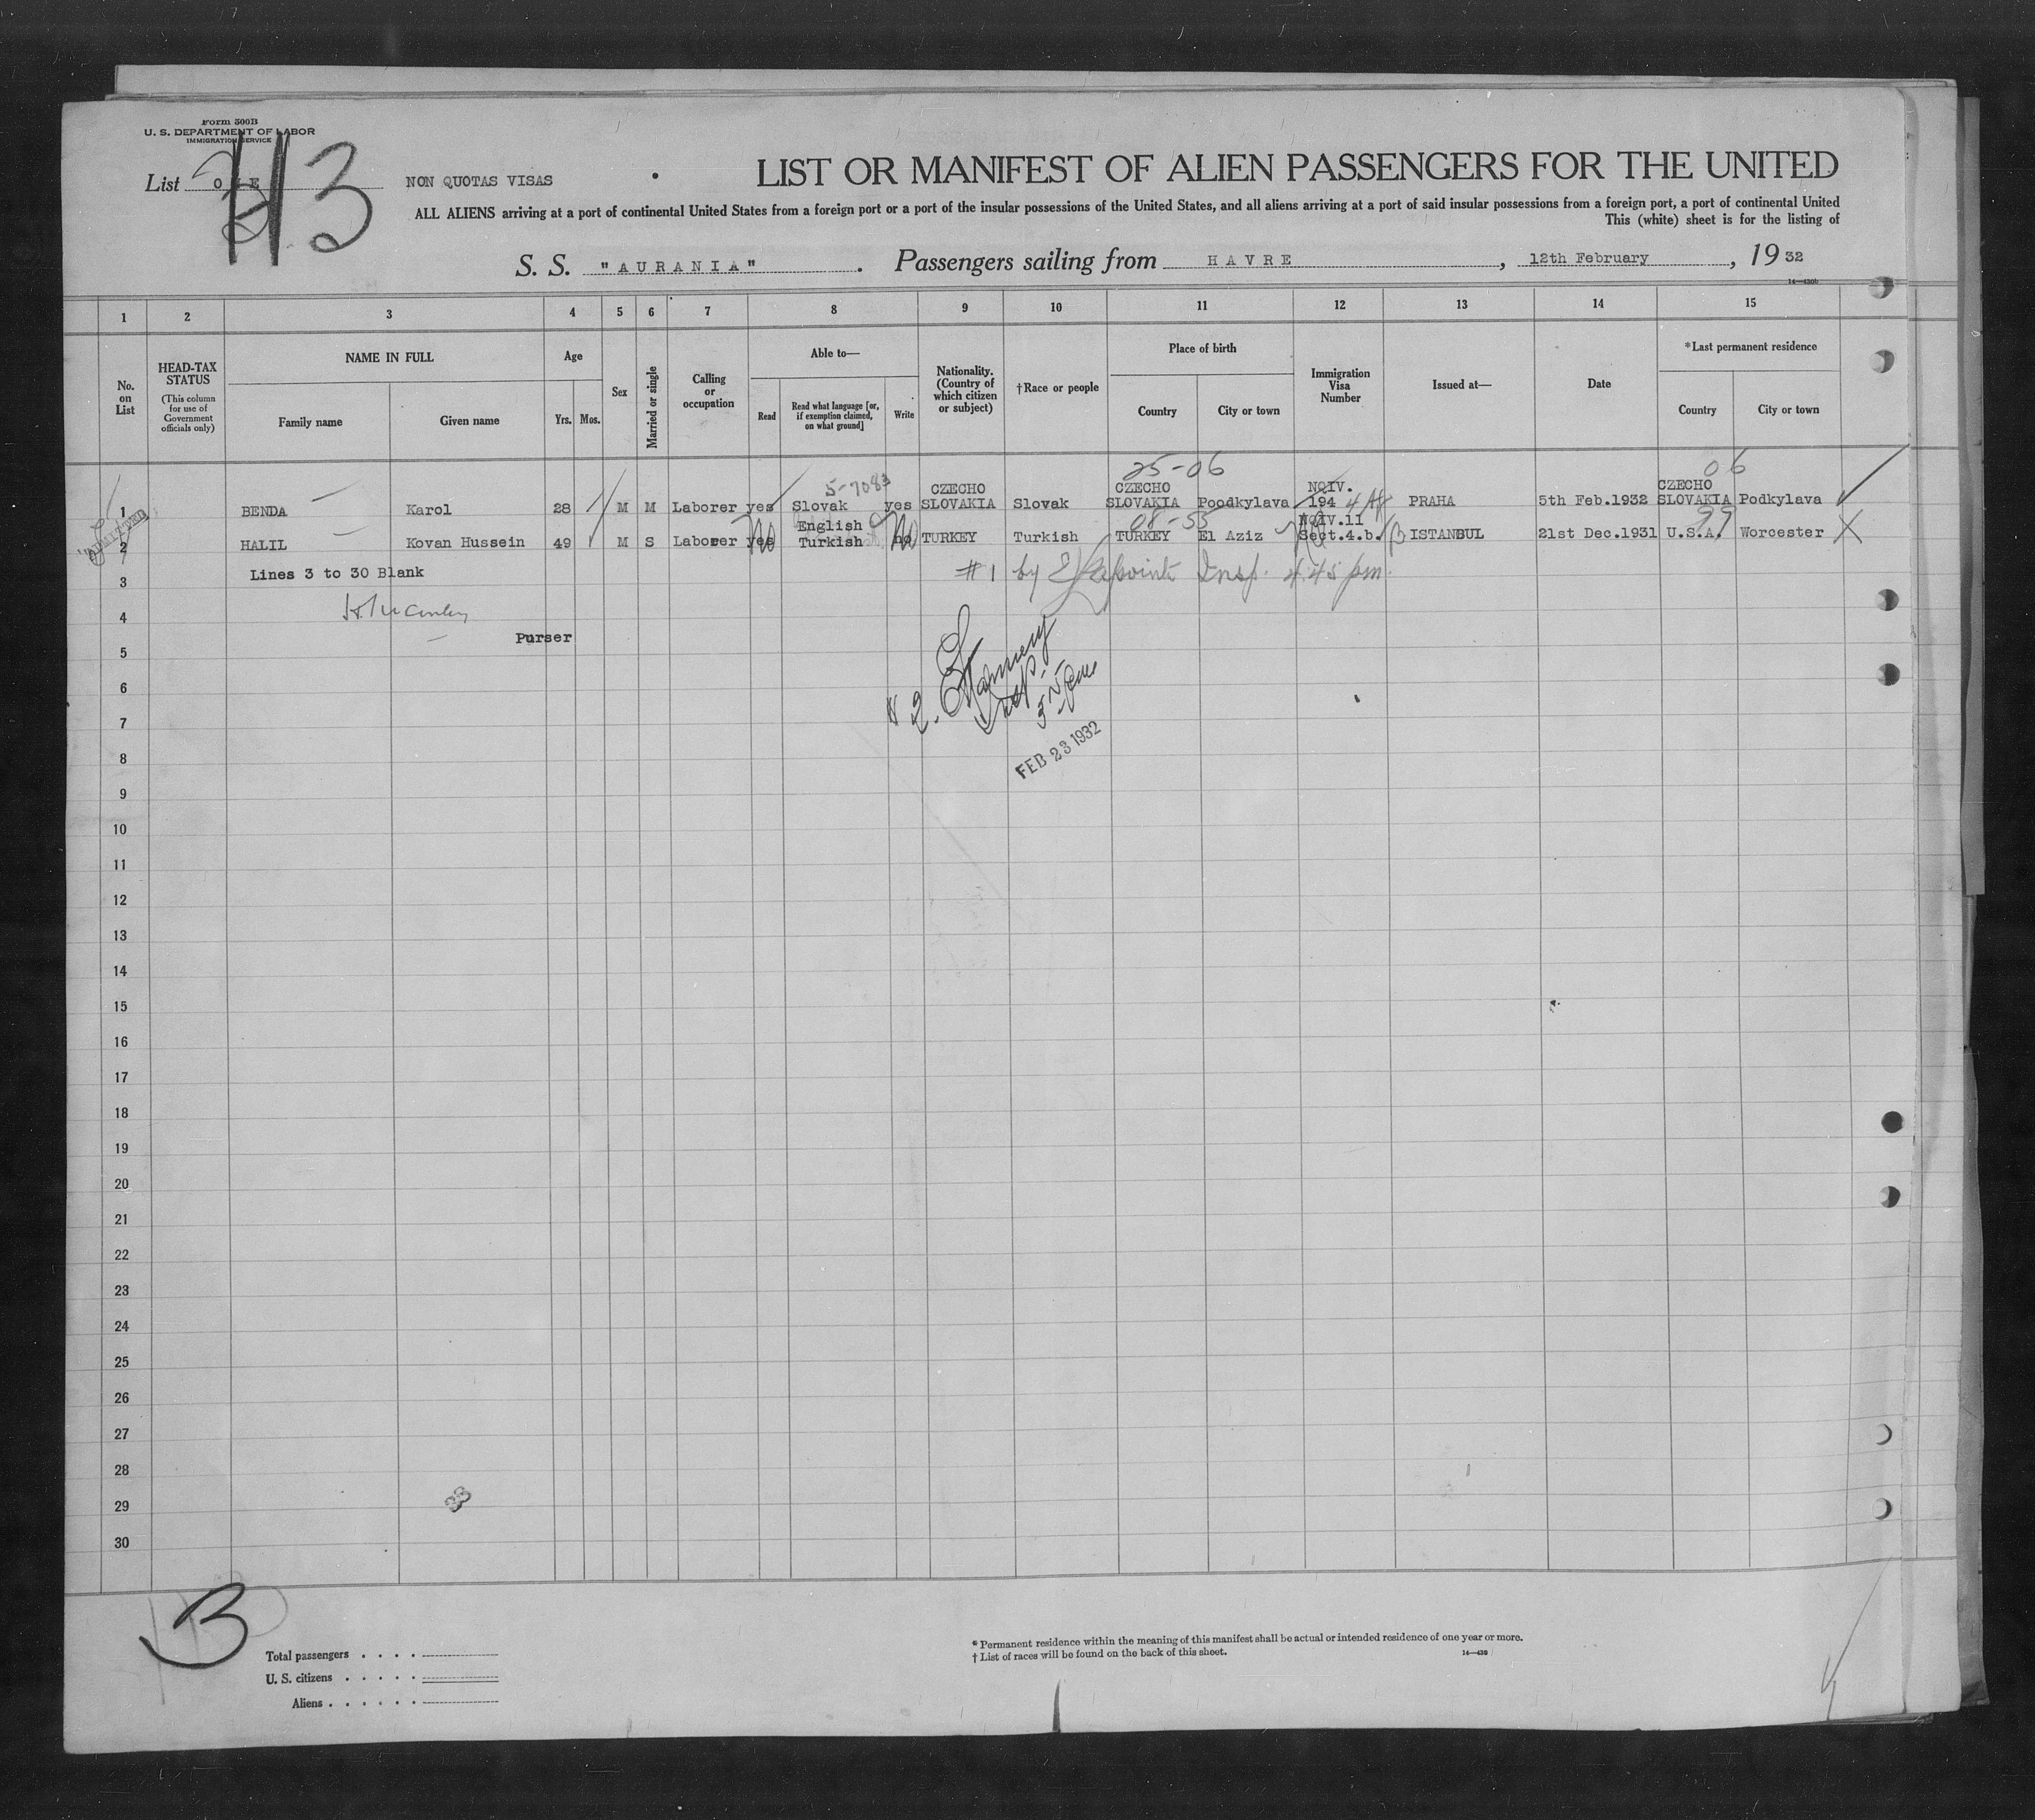 Form 500B
U. S. DEPARTMENT OF LABOR
IMMIGRATION SERVICE
List ONE NON QUOTAS VISAS
3
LIST OR MANIFEST OF ALIEN PASSENGERS FOR THE UNITED
ALL ALIENS arriving at a port of continental United States from a foreign port or a port of the insular possessions of the United States, and all aliens arriving at a port of said insular possessions from a foreign port, a port of continental United
This (white) sheet is for the listing of
S. S. "AURANIA". Passengers sailing from HAVRE, 12th February, 19 32
14—430b
1 2 3 4 5 6 7 8 9 10 11 12 13 14 15
No. on List
HEAD-TAX STATUS (This column for use of Government officials only)
NAME IN FULL
Family name Given name
Age
Yrs. Mos.
Sex
Married or single
Calling or occupation
Able to—
Read Read what language [or, if exemption claimed, on what ground] Write
Nationality. (Country of which citizen or subject)
†Race or people
Place of birth
Country City or town
Immigration Visa Number
Issued at—
Date
*Last permanent residence
Country City or town
25-06 06
5-7083 CZECHO CZECHO NQIV. CZECHO
1 BENDA Karol 28 M M Laborer yes Slovak yes SLOVAKIA Slovak SLOVAKIA Poodkylava 194 PRAHA 5th Feb.1932 SLOVAKIA Podkylava
English 08-55 NQIV.11 99
ADMITTED 2 HALIL Kovan Hussein 49 M S Laborer yes No Turkish no No TURKEY Turkish TURKEY El Aziz Sect.4.b. ISTANBUL 21st Dec.1931 U.S.A. Worcester X
3 Lines 3 to 30 Blank #1 by Lapointe Insp. 4.45 pm.
4
Purser
5
6
7
# 2. Insp.
FEB 23 1932
8
9
10
11
12
13
14
15
16
17
18
19
20
21
22
23
24
25
26
27
28
29
30
33
B
Total passengers
U. S. citizens
Aliens
* Permanent residence within the meaning of this manifest shall be actual or intended residence of one year or more.
† List of races will be found on the back of this sheet. 14—430